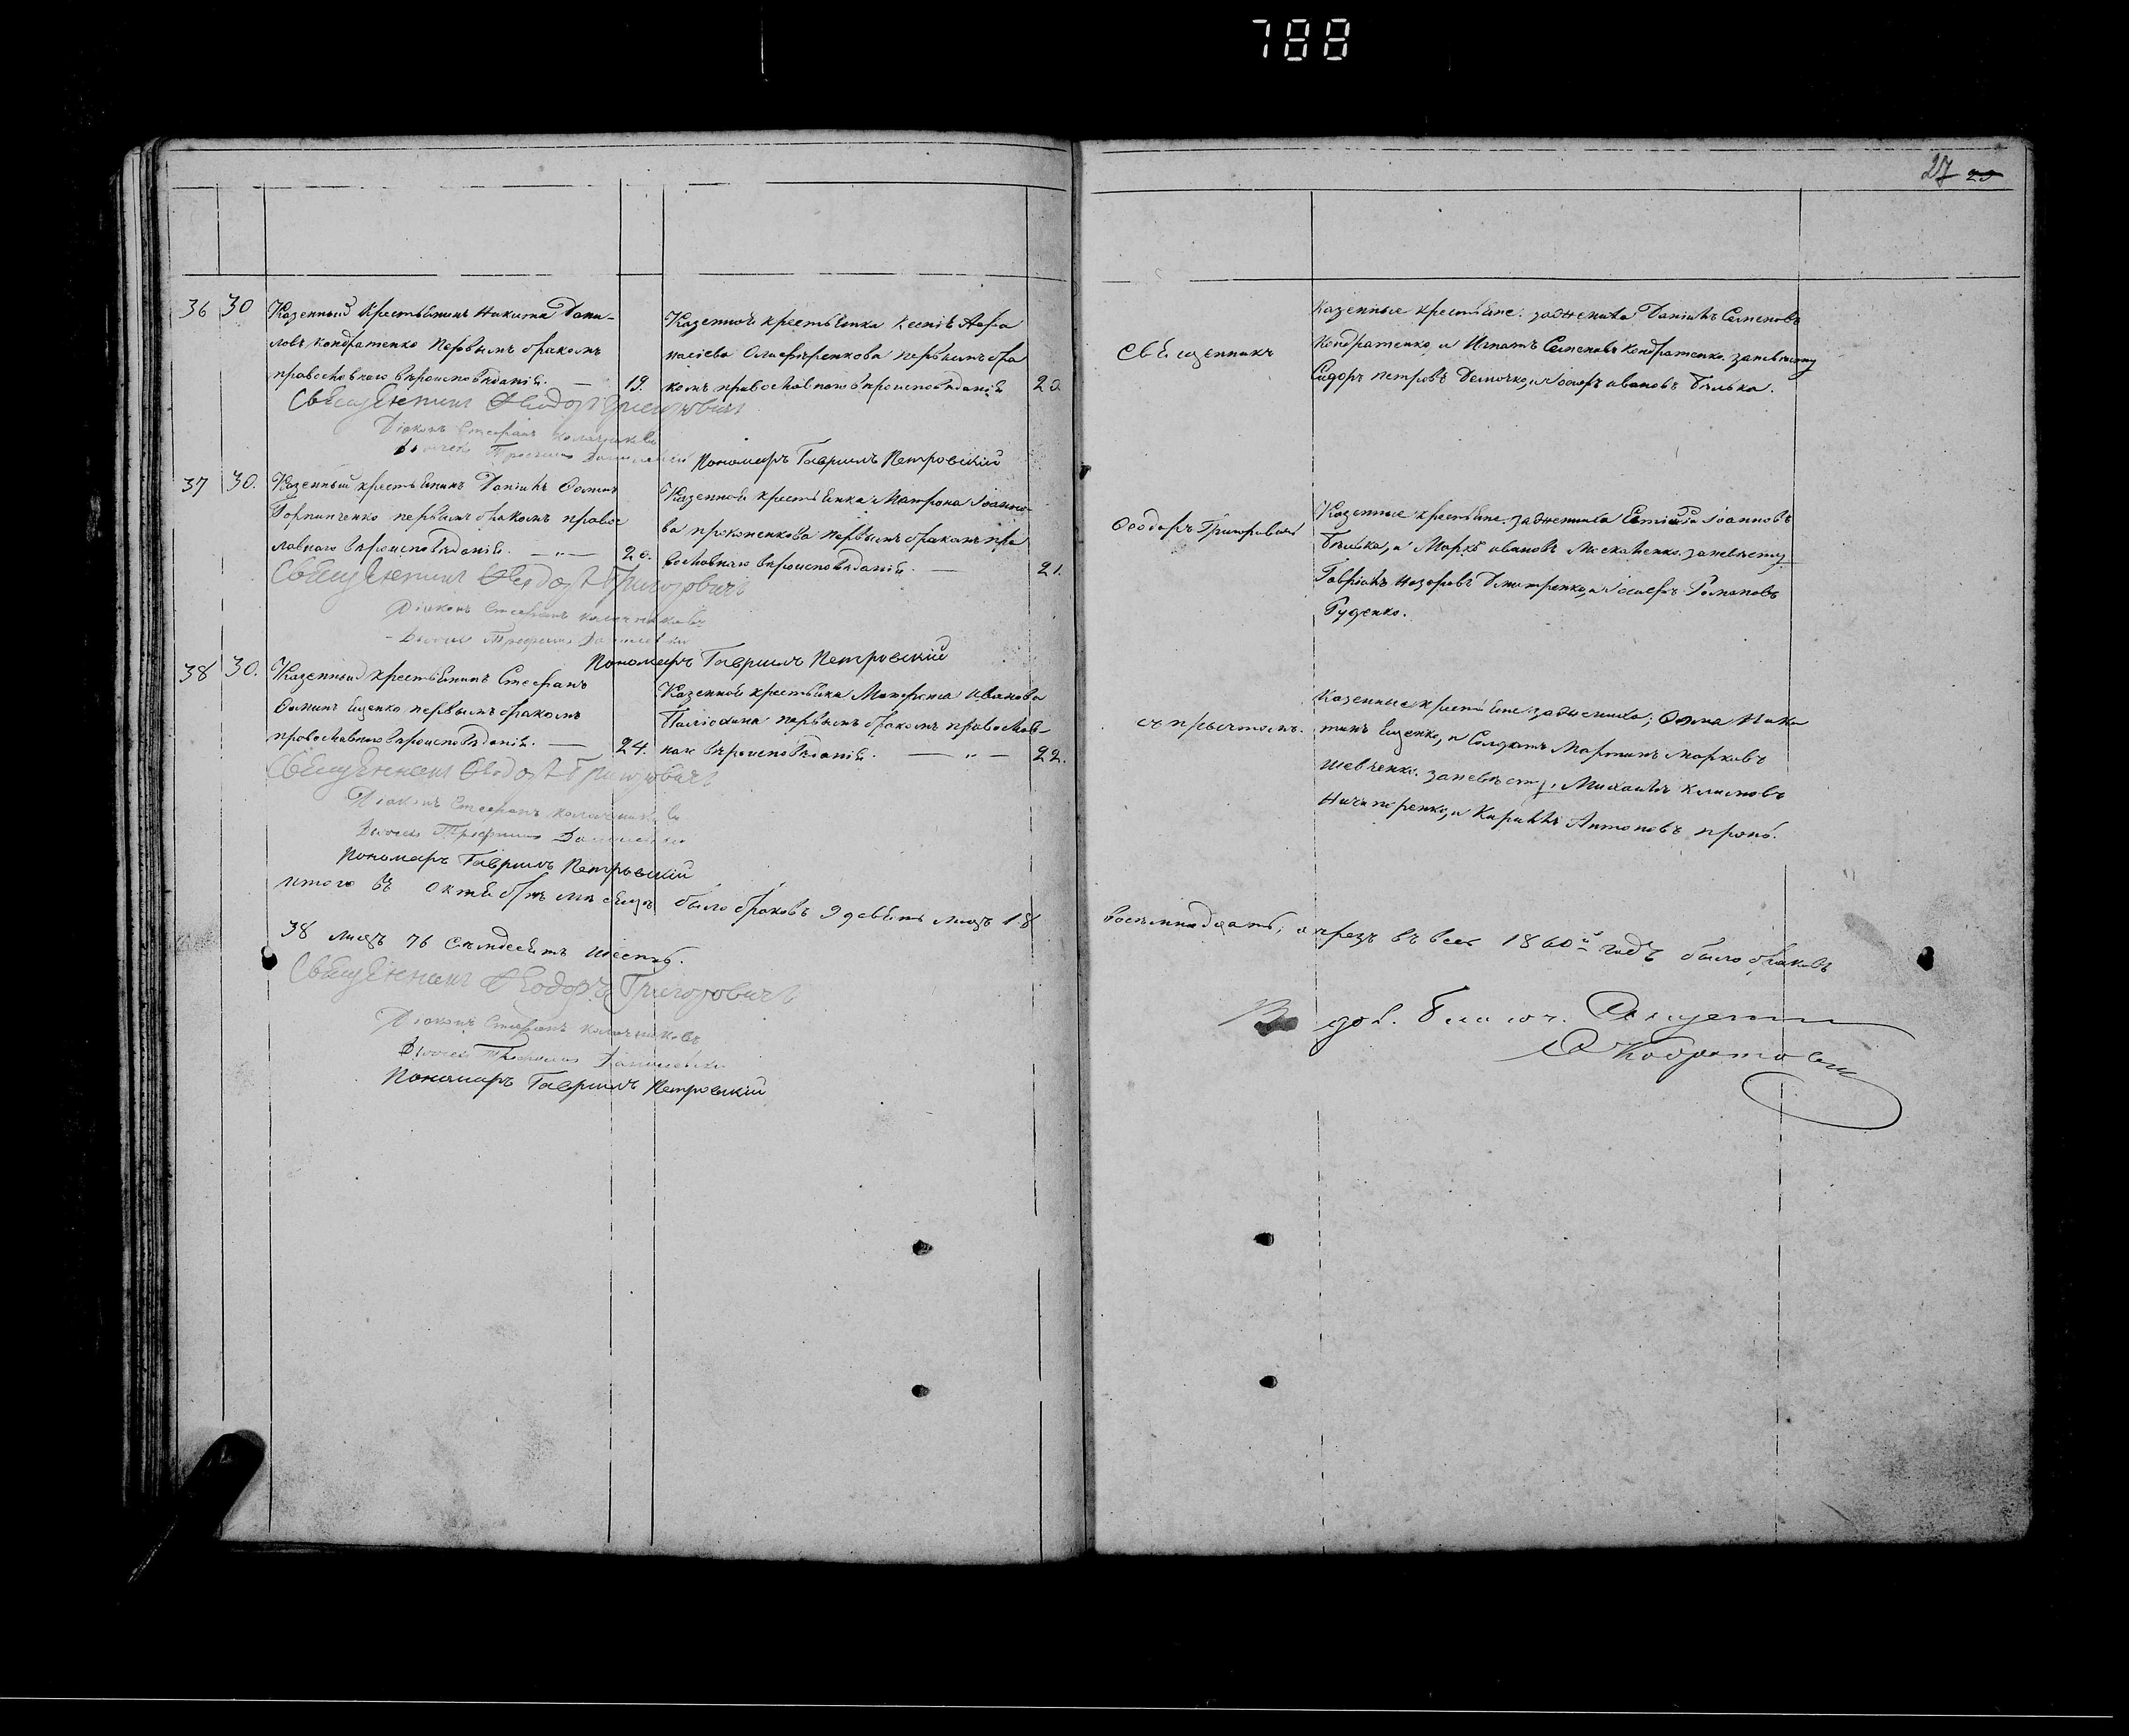 788
27 29
36 30 Казенный крестьянинъ Никита Дани-
ловъ Кондратенко первымъ бракомъ
православнаго вѣроисповѣданія. — 19.
Казенная крестьянка Ксенія Афа
насіева первымъ бра
комъ православнаго вѣроисповѣданія 20.
Священникъ
Казенные крестьяне. за жениха Даніилъ Семеновъ
Кондратенко, и Игнатъ Семеновъ Кондратенко. за невѣсту
Сидоръ Петровъ и Іосифъ Ивановъ Бѣлька.
Священникъ Ѳеодоръ Григоровичъ
Діаконъ Стефанъ Калачниковъ
Дьячекъ Трофимъ
Пономарь Гавриилъ Петровскій
37 30. Казенный крестьянинъ Даніилъ Ѳоминъ
Горпинченко первымъ бракомъ правос
лавнаго вѣроисповѣданія. — „ — 20.
Казенная крестьянка Матрона Іоанно
ва Прокопенкова первымъ бракомъ пра
вославнаго вѣроисповѣданія. — 21.
Ѳеодоръ Григоровичъ
Казенные крестьяне. за жениха Іоанновъ
Бѣлька, и Марко Ивановъ Москаленко. за невѣсту
Гавріилъ Назаровъ Дмитренко, и Іосифъ Романовъ
Руденко.
Священникъ Ѳеодоръ Григоровичъ
Діаконъ Стефанъ Калачниковъ
Дьячекъ Трофимъ
Пономарь Гавриилъ Петровскій
38 30. Казенный крестьянинъ Стефанъ
Ѳоминъ Ященко первымъ бракомъ
православнаго вѣроисповѣданія. — 24.
Казенная крестьянка Иванова
первымъ бракомъ православ-
наго вѣроисповѣданія. — „ — 22.
съ причтомъ.
Казенные крестьяне за жениха; Ѳома Ники
тинъ Ященко, и Солдатъ Мартинъ Марковъ
Шевченко. за невѣсту, Михаилъ Климовъ
Ничипоренко, и Кириллъ Антоновъ
Священникъ Ѳеодоръ Григоровичъ
Діаконъ Стефанъ Калачниковъ
Дьячекъ Трофимъ
Пономарь Гавриилъ Петровскій
итого въ Октябрѣ мѣсяцѣ было браковъ 9 девять лицъ 18
восемнадцать; а чрезъ въ весь 1860й годъ было браковъ
38 лицъ 76 семдесятъ шесть.
Священникъ Ѳеодоръ Григоровичъ
Діаконъ Стефанъ Калачниковъ
Дьячекъ Трофимъ
Пономарь Гавриилъ Петровскій